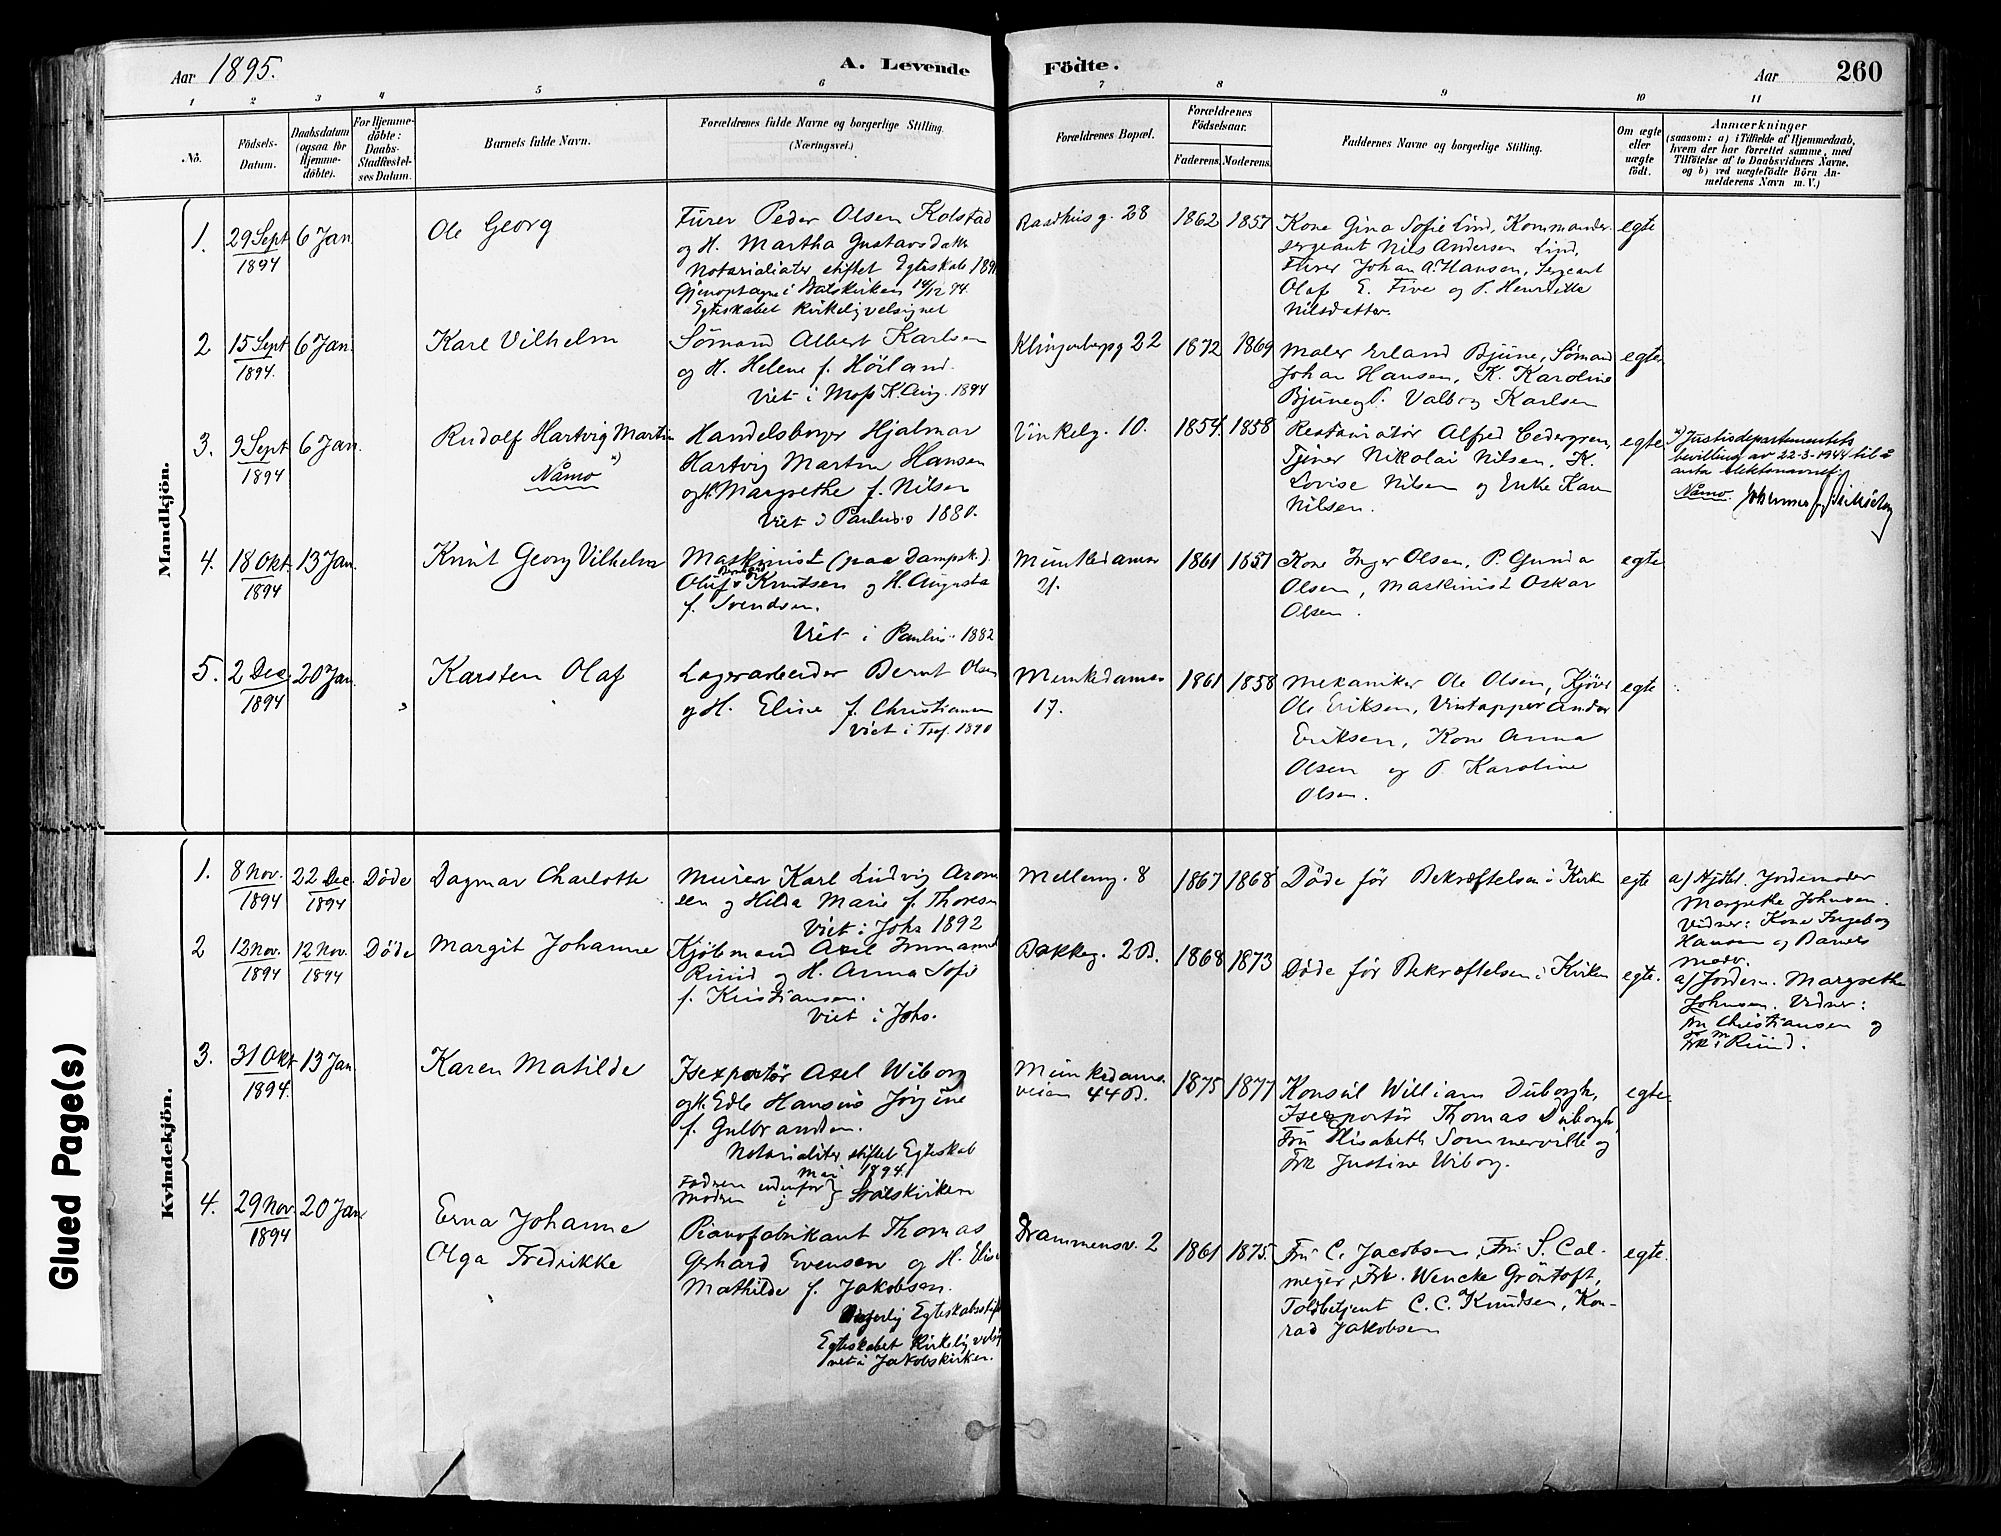 Aar 1895.
A. Levende Födte.
Aar 260
1 2 3 4 5 6 7 8 9 10 11
No.
Födsels-
Datum.
Daabsdatum
(ogsaa for
Hjemme-
döbte).
For Hjemme-
döbte:
Daabs-
Stadfæstel-
ses Datum.
Barnets fulde Navn.
Forældrenes fulde Navne og borgerlige Stilling.
(Næringsvei.)
Forældrenes Bopæl.
Forældrenes
Födselsaar.
Faderens. Moderens.
Faddernes Navne og borgerlige Stilling.
Om ægte
eller
uægte
födt.
Anmærkninger
(saasom: a) i Tilfælde af Hjemmedaab,
hvem der har forrettet samme, med
Tilföielse af to Daabsvidners Navne,
og b) ved uægtefödte Börn An-
melderens Navn m. V.)
Mandkjön.
1. 29 Sept 1894
6 Jan
Ole Georg
Furer Peder Olsen Kolstad
og H. Martha Gustavsdatt
Notarialiter stiftet Egteskab
Gjenoptagne i Statskirken 14/12 94
Egteskabet Kirkelig velsignet
Raadhusg. 28
1862 1857
Kone Gina Sofie Lind, Kommander
sergeant Nils Andersen Lind,
Furer Johan A. Hansen, Sergeant
Olaf E. Five og P. Henriette
Nilsdatter.
egte
2 15 Sept 1894.
6 Jan.
Karl Vilhelm
Sømand Albert Karlsen
og H. Helene f. Hörland.
Viet i Moss K. Aug. 1894
Klingenbergg 22
1872 1869
Maler Erland Bjune, Sømand
Johan Hansen, K. Karoline
Bjune og P. Valborg Karlsen
egte
3. 9 Sept 1894
6 Jan.
Rudolf Hartvig Martin
Nåmo x)
Handelsborger Hjalmar
Hartvig Martin Hansen
og H. Margrethe f. Nilsen
Viet i Paulus 1880.
Vinkelg. 10.
1854. 1858
Restauratør Alfred Cedergren,
Tjener Nikolai Nilsen, K.
Lovise Nilsen og Enke Karen
Nilsen.
egte
x) Justisdepartementets
bevilling av 22-3-1944 til å
anta slektsnavnet:
Nåmo.
4. 18 Okt 1894
13 Jan
Knut Georg Vilhelm
Maskinist (paa Dampsk.)
Oluf Bernhard Knutsen og H. Augusta
f. Svendsen.
Viet i Paulus 1882
Munkedamsv
21.
1861 1857
Kone Inger Olsen, P. Gunda
Olsen, Maskinist Oskar
Olsen.
egte
5. 2 Dec. 1894
20 Jan.
Karsten Olaf
Lagerarbeider Bernt Olsen
og H. Eline f. Christiansen
Viet i Tref. 1890
Munkedamsv
17.
1861 1858
Mekaniker Ole Olsen, Kjører
Ole Eriksen, Vintapper Anders
Eriksen, Kone Anna
Olsen og P. Karoline
Olsen.
egte
Kvindekjön.
1. 8 Nov. 1894
22 Dec. 1894
Døde
Dagmar Charlotte
Murer Karl Ludvig Aron
sen og Hilda Marie f. Thoresen
Viet i Johs 1892
Mellemg. 8
1867 1868
Døde før Bekræftelsen i Kirken
egte
a/ Jordemoder
Margrethe Johnsen.
Vidner: Kone Ingeborg
Hansen og Barnets
Moder.
2 12 Nov. 1894
12 Nov. 1894
Døde
Margit Johanne
Kjöbmand Axel Immanuel
Ruud og H. Anna Sofie
f. Kristiansen.
Viet i Johs.
Bakkeg. 2 B.
1868 1873
Døde før Bekræftelsen i Kirken
egte.
a/ Jordem. Margrethe
Johnsen. Vidner:
Fru Christiansen og
Frk Ruud.
3. 31 Okt 1894.
13 Jan
Karen Matilde
Isexportør Axel Wiborg
og H. Edle Hansine Jørgine
f. Gulbrandsen.
Notarialiter stiftet Egteskab
Mai 1894
Fadren udenfor
Modren i Statskirken
Munkedams-
veien 44 B.
1875 1877
Konsul William Duborgh,
Isexportør Thomas Duborgh
Fru Elisabeth Sommerville og
Frk Justine Wiborg.
egte
4. 29 Nov. 1894
20 Jan
Erna Johanne
Olga Fredrikke
Pianofabrikant Thomas
Gerhard Evensen og H. Elise
Mathilde f. Jakobsen.
Borgerlig Egteskabsstift
Egteskabet Kirkelig velsig
net i Jakobskirken.
Drammensv. 2
1861 1875.
Fru C. Jacobsen, Fru S. Cal-
meyer, Frk. Wencke Gröntoft,
Toldbetjent C. C. Knudsen, Kon-
rad Jakobsen
egte.
Glued Page(s)